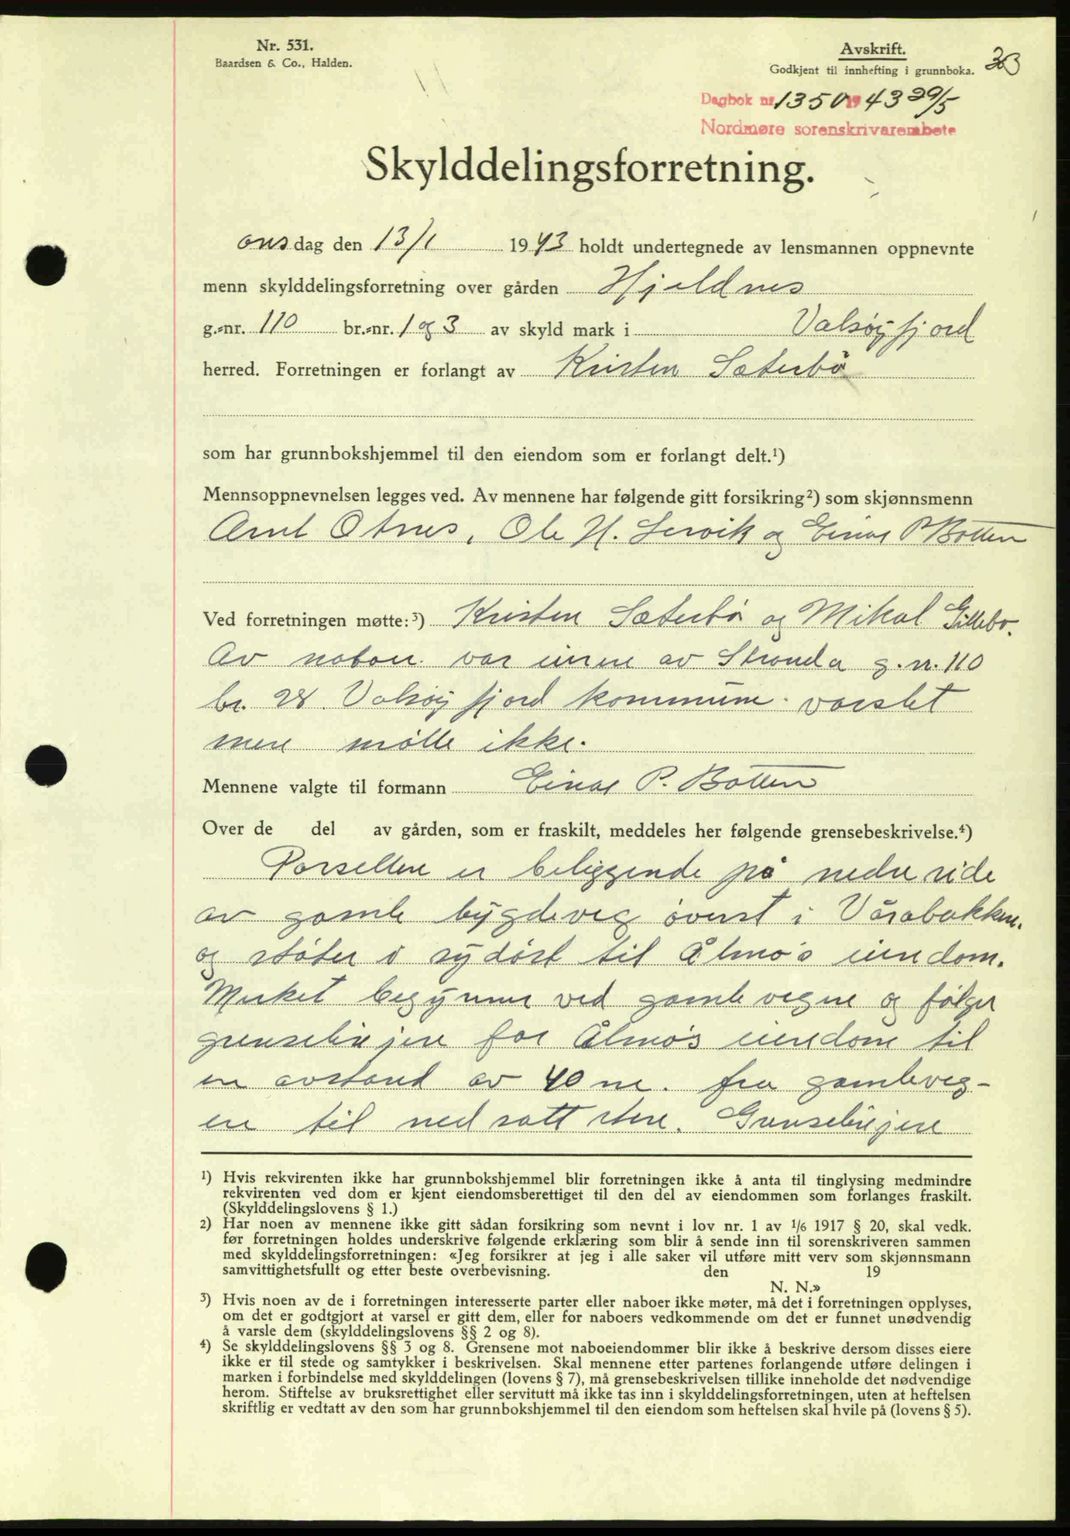 Nr. 531.
Baardsen & Co., Halden.
Avskrift.
Godkjent til innhefting i grunnboka.
Dagbok nr 1350 1943 29/5
Nordmøre sorenskrivarembete
Skylddelingsforretning.
onsdag den 13/1 1943 holdt undertegnede av lensmannen oppnevnte
menn skylddelingsforretning over gården Hjeldnes
g.-nr. 110 br.-nr. 1 og 3 av skyld mark i Valsøyfjord
herred. Forretningen er forlangt av Kristen Sæterbø
som har grunnbokshjemmel til den eiendom som er forlangt delt.¹)
Mennsoppnevnelsen legges ved. Av mennene har følgende gitt forsikring²) som skjønnsmenn
Arnt Otnes, Ole H. Lervik og Einar P. Botten
Ved forretningen møtte:³) Kristen Sæterbø og Mikal Gillebo.
Av naboer var eieren av Stranda g.nr. 110
br. 28 Valsøyfjord kommune varslet
men møtte ikke.
Mennene valgte til formann Einar P. Botten
Over de del av gården, som er fraskilt, meddeles her følgende grensebeskrivelse.⁴)
Parsellen er beliggende på nedre side
av gamle bygdeveg øverst i Vårabakken.
og støter i sydøst til Ålmo's eiendom.
Merket begynner ved gamlevegen og følger
grenselinjen for Ålmo's eiendom til
en avstand av 40 m. fra gamleveg-
en til nedsatt sten. Grenselinjen
¹) Hvis rekvirenten ikke har grunnbokshjemmel blir forretningen ikke å anta til tinglysing medmindre
rekvirenten ved dom er kjent eiendomsberettiget til den del av eiendommen som forlanges fraskilt.
(Skylddelingslovens § 1.)
²) Har noen av mennene ikke gitt sådan forsikring som nevnt i lov nr. 1 av 1/6 1917 § 20, skal vedk.
før forretningen holdes underskrive følgende erklæring som blir å sende inn til sorenskriveren sammen
med skylddelingsforretningen: «Jeg forsikrer at jeg i alle saker vil utføre mitt verv som skjønnsmann
samvittighetsfullt og etter beste overbevisning. den 19
N. N.»
³) Hvis noen av de i forretningen interesserte parter eller naboer ikke møter, må det i forretningen opplyses,
om det er godtgjort at varsel er gitt dem, eller for naboers vedkommende om det er funnet unødvendig
å varsle dem (skylddelingslovens §§ 2 og 8).
⁴) Se skylddelingslovens §§ 3 og 8. Grensene mot naboeiendommer blir ikke å beskrive dersom disses eiere
ikke er til stede og samtykker i beskrivelsen. Skal mennene etter partenes forlangende utføre delingen i
marken i forbindelse med skylddelingen (lovens § 7), må grensebeskrivelsen tillike inneholde det nødvendige
herom. Stiftelse av bruksrettighet eller servitutt må ikke tas inn i skylddelingsforretningen, uten at heftelsen
skriftlig er vedtatt av den som har grunnbokshjemmel til den eiendom som heftelsen skal hvile på (lovens § 5).